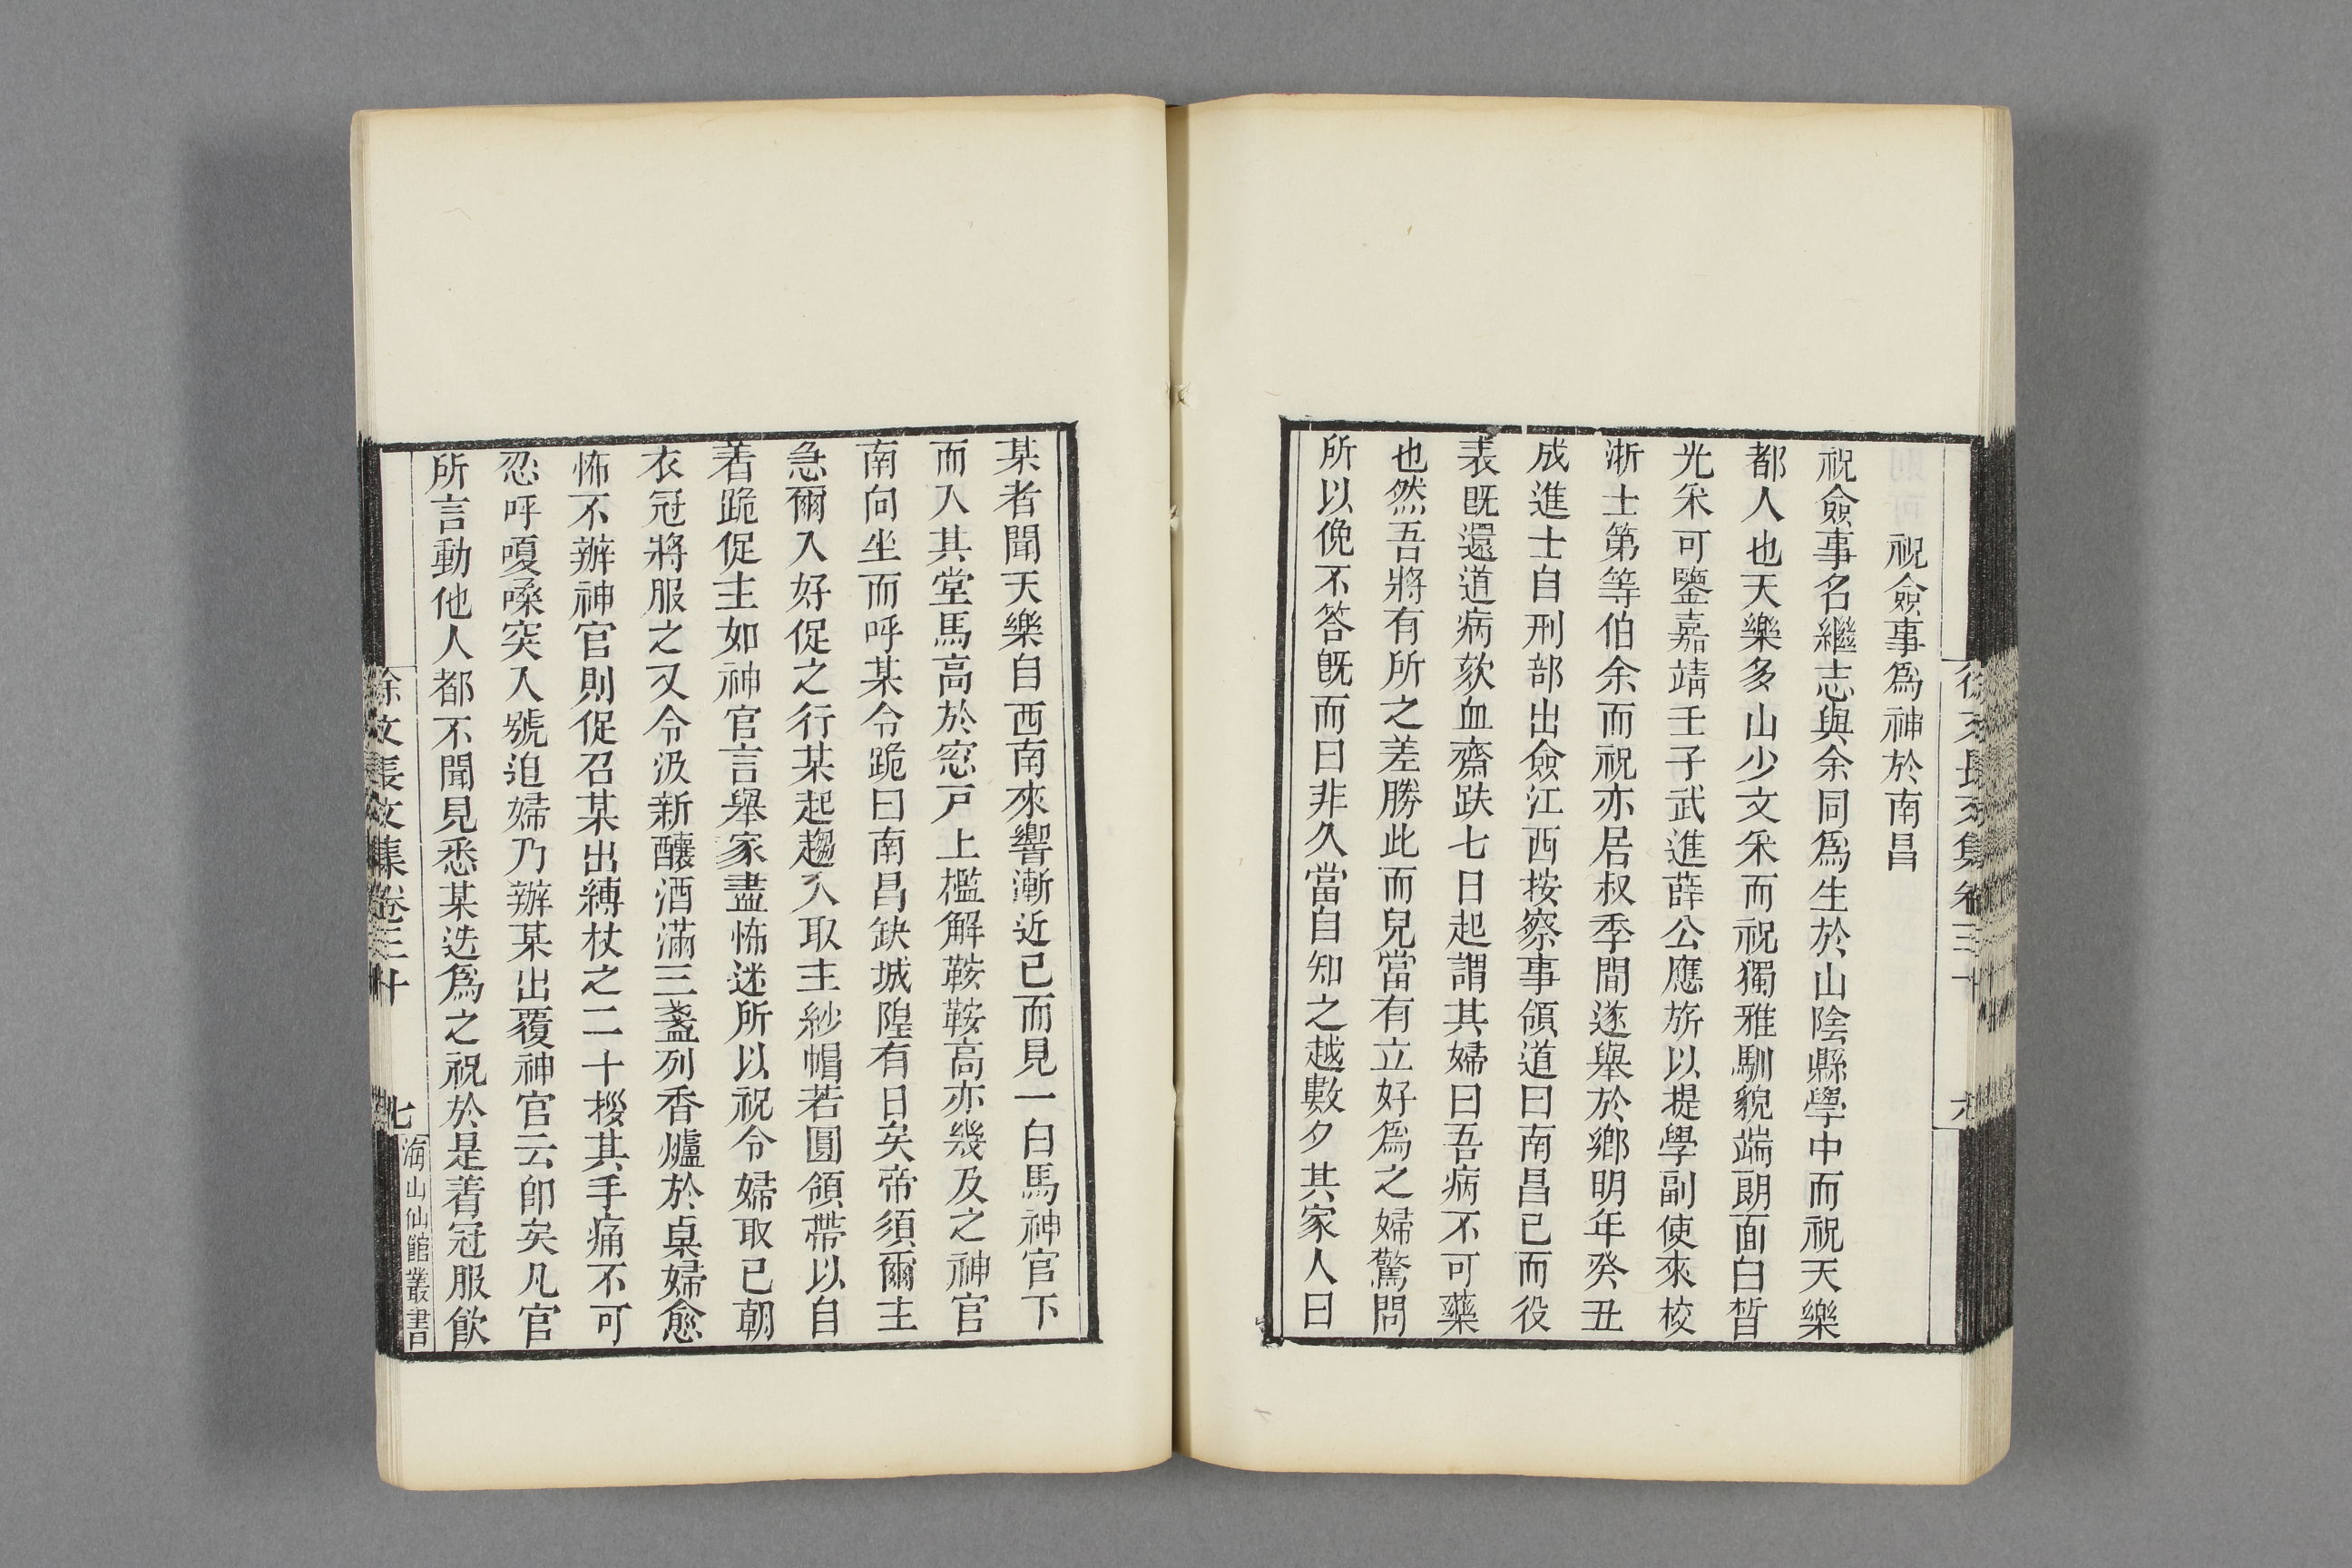 祝僉事爲神於南昌
祝僉事名繼志與余同爲生於山陰縣學中而祝天樂
都人也天樂多山少文采而祝獨雅馴貌端朗面白晳
光采可鑒嘉靖壬子武進薛公應旂以提學副使來校
浙士第等伯余而祝亦居叔季間遂舉於鄉明年癸丑
成進士自刑部出僉江西按察事領道曰南昌已而役
表既還道病欬血齋趺七日起謂其婦曰吾病不可藥
也然吾將有所之差勝此而兒當有立好爲之婦驚問
所以俛不答既而曰非久當自知之越數夕其家人曰
某者聞天樂自西南來響漸近已而見一白馬神官下
而入其堂馬高於窓戸上檻解鞍鞍高亦幾及之神官
南向坐而呼某令跪曰南昌缺城隍有日矣帝須爾主
急爾入好促之行某起趨入取主紗帽若圓領帶以自
着跪促主如神官言舉家盡怖迷所以祝令婦取已朝
衣冠將服之又令汲新釀酒滿三盞列香爐於桌婦愈
怖不辦神官則促召某出縛杖之二十椶其手痛不可
忍呼嗄嗓突入號迫婦乃辦某出覆神官云卽矣凡官
所言動他人都不聞見悉某迭爲之祝於是着冠服飮
徐文長文集卷三十
七
海山仙館叢書